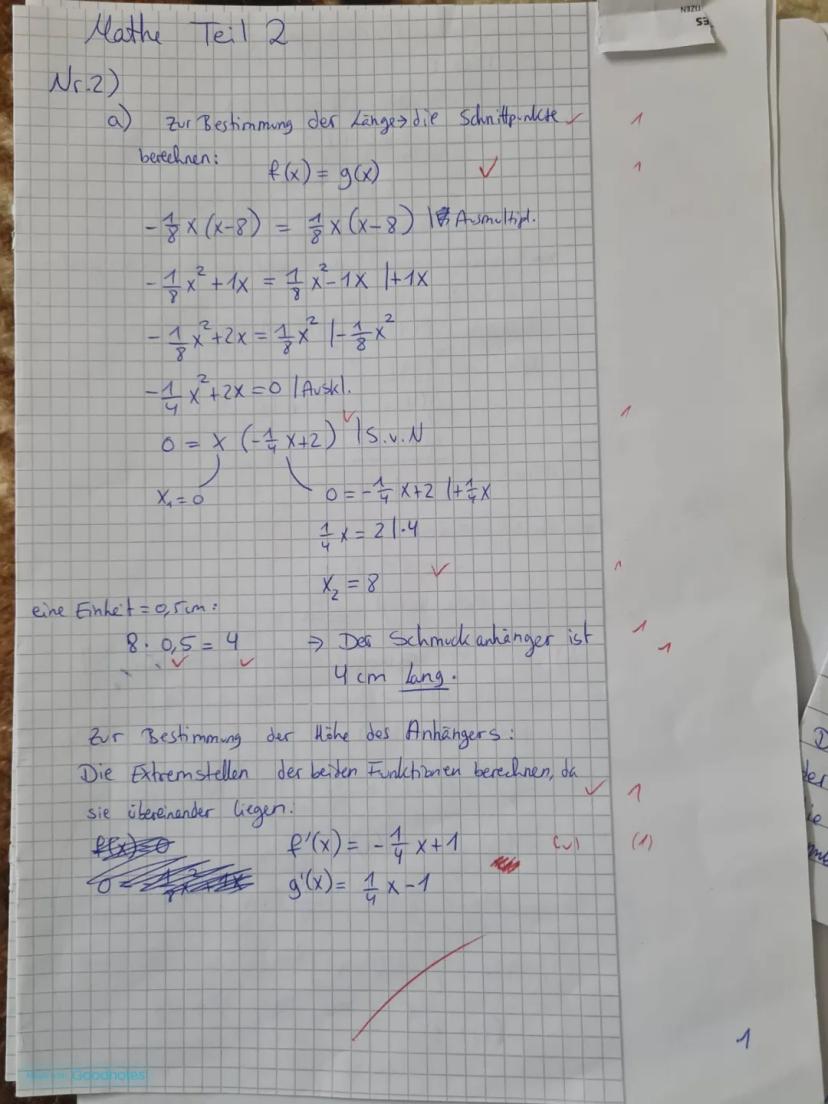 NƎZU
ES
Mathe Teil 2
Nr. 2)
a) Zur Bestimmung der Länge → die Schnittpunkte ✓ 1
berechnen: f(x) = g(x) ✓ 1
-1/8 x (x-8) = 1/8 x (x-8) | Ausmultipl.
-1/8 x² + 1x = 1/8 x² - 1x |+1x
-1/8 x² + 2x = 1/8 x² |-1/8 x²
-1/4 x² + 2x = 0 | Auskl.
0 = x (-1/4 x+2) ✓ | S.v.N 1
x₁ = 0 0 = -1/4 x+2 |+1/4 x
1/4 x = 2 |·4
x₂ = 8 ✓ 1
eine Einheit = 0,5cm:
8 · 0,5 = 4 ⇒ Der Schmuckanhänger ist 1
✓ ✓ 1
4 cm lang.
Zur Bestimmung der Höhe des Anhängers:
Die Extremstellen der beiden Funktionen berechnen, da
sie übereinander liegen. ✓ 1
f'(x) = -1/4 x+1 (✓) (1)
g'(x) = 1/4 x-1
1
Goodnotes